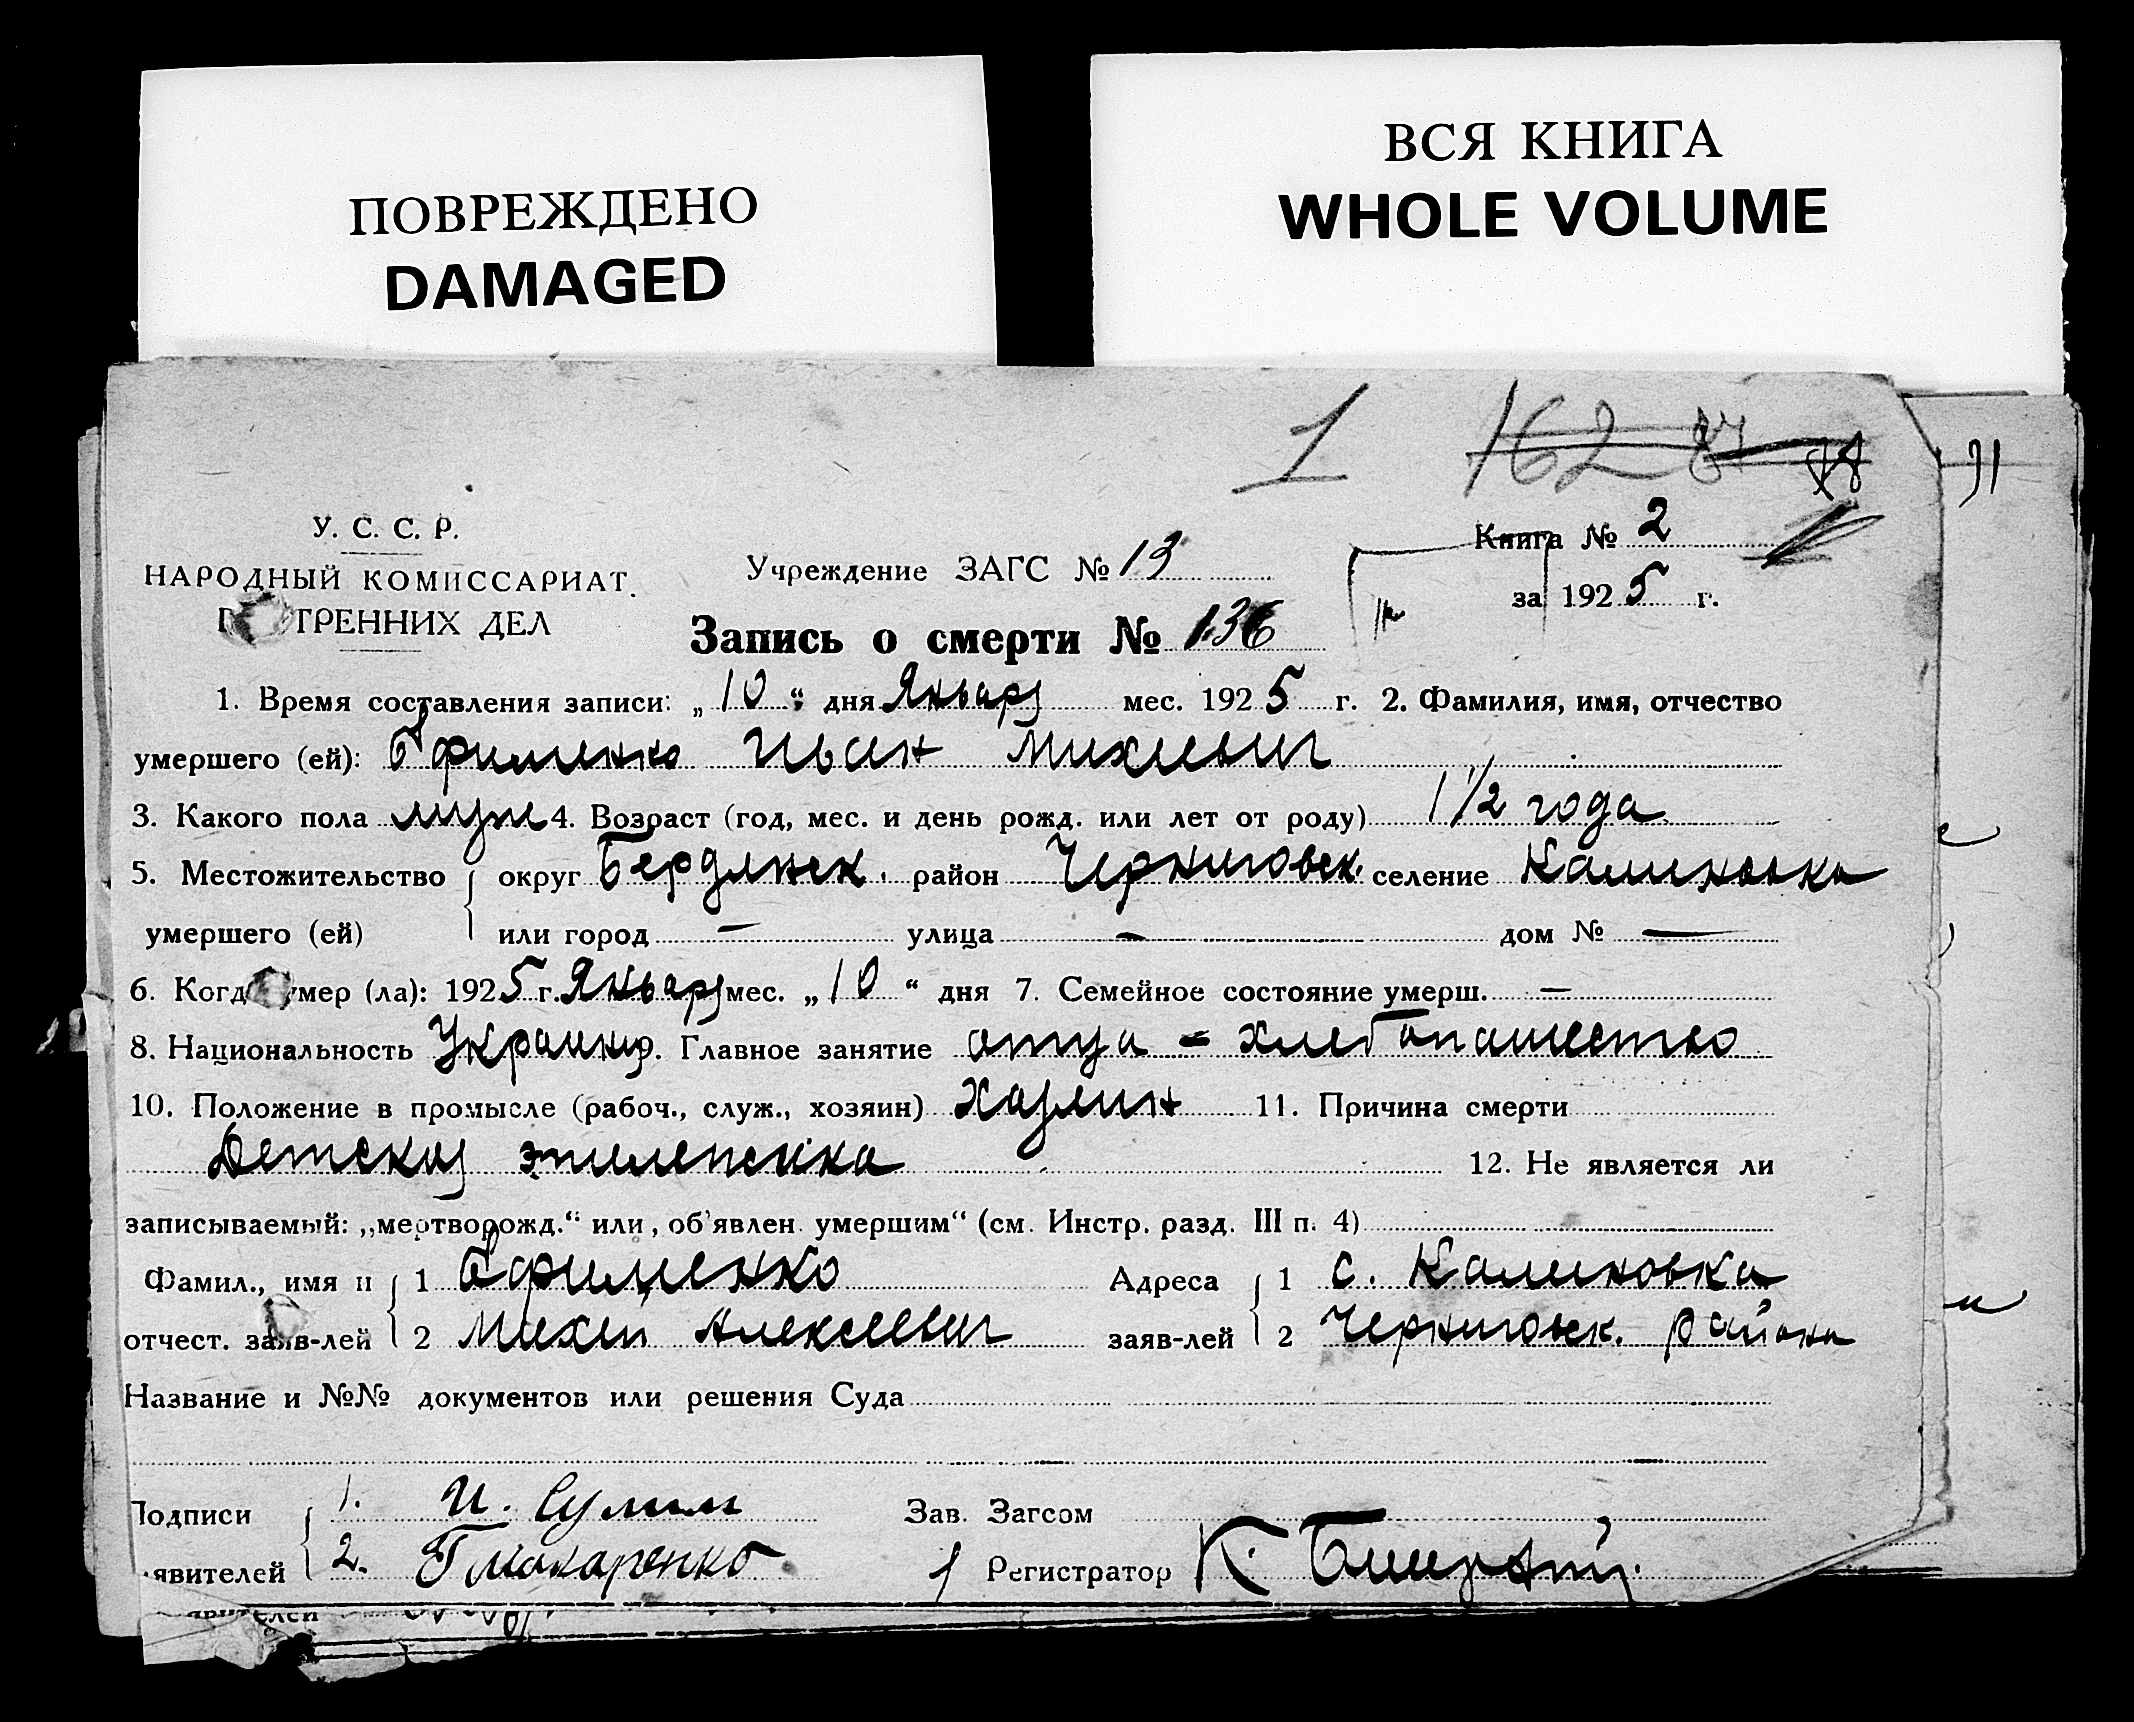 ПОВРЕЖДЕНО
DAMAGED
ВСЯ КНИГА
WHOLE VOLUME
1 162 87 78 91
У. С. С. Р.
НАРОДНЫЙ КОМИССАРИАТ
ТРЕННИХ ДЕЛ
Учреждение ЗАГС № 13
Книга № 2
за 1925 г.
Запись о смерти № 136
1. Время составления записи: „10“ дня Января мес. 1925 г. 2. Фамилия, имя, отчество
умершего (ей): Ефименко Иван Михеевич
3. Какого пола муж 4. Возраст (год, мес. и день рожд. или лет от роду) 1 1/2 года
5. Местожительство округ Бердянск. район Черниговск. селение Калиновка
умершего (ей) или город — улица — дом № —
6. Когда умер (ла): 1925 г. Января мес. „10“ дня 7. Семейное состояние умерш. —
8. Национальность Украин 9. Главное занятие отца - хлебопашество
10. Положение в промысле (рабоч., служ., хозяин) Хазяин 11. Причина смерти
Детская эпилепсика 12. Не является ли
записываемый: „мертворожд.“ или „об'явлен умершим“ (см. Инстр. разд. III п. 4)
Фамил., имя и 1 Ефименко Адреса 1 с. Калиновка
отчест. заяв-лей 2 Михей Алексеевич заяв-лей 2 Черниговск. района
Название и №№ документов или решения Суда
Подписи 1. И. Сулим Зав. Загсом
явителей 2. Макаренко Регистратор К.
явителей